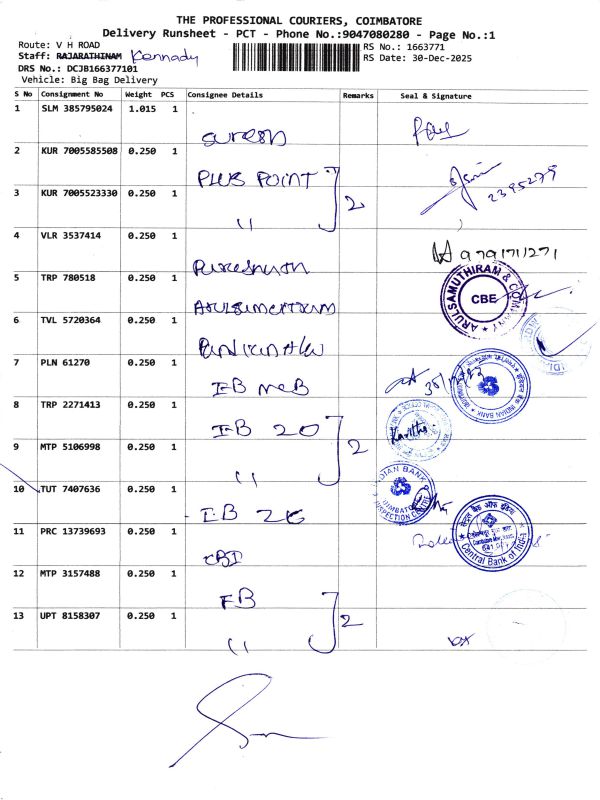 THE PROFESSIONAL COURIERS, COIMBATORE
Delivery Runsheet - PCT - Phone No.:9047080280 - Page No.:1
Route: V H ROAD
RS No.: 1663771
Staff: RAJARATHINAM Kennady
RS Date: 30-Dec-2025
DRS No.: DCJB166377101
Vehicle: Big Bag Delivery
S No Consignment No Weight PCS Consignee Details Remarks Seal & Signature
1 SLM 385795024 1.015 1 Suresh
2 KUR 7005585508 0.250 1 PLUS POINT
2395279
3 KUR 7005523330 0.250 1 11 2
4 VLR 3537414 0.250 1
9791711271
5 TRP 780518 0.250 1
ARULSAMUTHIRAM & COMPANY
CBE
6 TVL 5720364 0.250 1
7 PLN 61270 0.250 1 IB MCB
INDIAN BANK
8 TRP 2271413 0.250 1 IB 20
Kavitha
9 MTP 5106998 0.250 1 11 2
10 TUT 7407636 0.250 1 IB 26
INDIAN BANK
INSPECTION CENTRE
11 PRC 13739693 0.250 1 CBI
सेन्ट्रल बैंक ऑफ इंडिया
Central Bank of India
12 MTP 3157488 0.250 1 FB
13 UPT 8158307 0.250 1 11 2